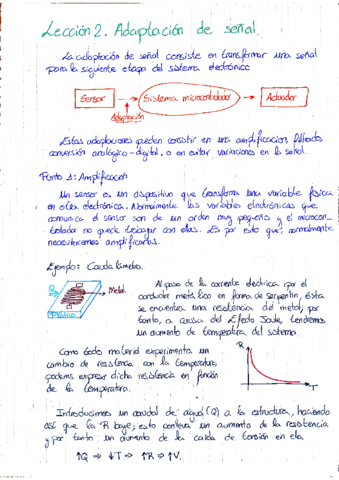 Lección 2. Adaptación de señal.
La adaptación de señal consiste en transformar una señal
para la siguiente etapa del sistema electrónico
Sensor
Sistema microcontrolador
Actuador
Adaptación
Estas adaptaciones pueden consistir en una amplificacion, filtrado,
conversión analógico-digital, o en evitar variaciones en la señal.
Punto 1: Amplificacion
Un sensor es un dispositivo que transforma una variable física
en otra electrónica. Normalmente las variables electrónicas que
comunica el sensor son de un orden muy pequeño y el microcon-
trolador no puede trabajar con ellas. Es por esto que, normalmente
necesitaremos amplificarlas.
Ejemplo: Caudalímetro.
Q
Metal
Plástico
Al paso de la corriente electrica por el
conductor metálico en forma de serpentín, ésta
se encuentra una resistencia del metal, por
tanto, a causa del Efecto Joule, tendremos
un aumento de temperatura del sistema.
Como todo material experimenta un
cambio de resistencia con la temperatura,
podemos expresar dicha resistencia en función
de la temperatura.
R
T
Introducimos un caudal de agua (Q) a la estructura, haciendo
así que la R baje; esto conlleva un aumento de la resistencia
y por tanto un aumento de la caida de tensión en ella.
↑Q ⇒ ↓T ⇒ ↑R ⇒ ↑V.